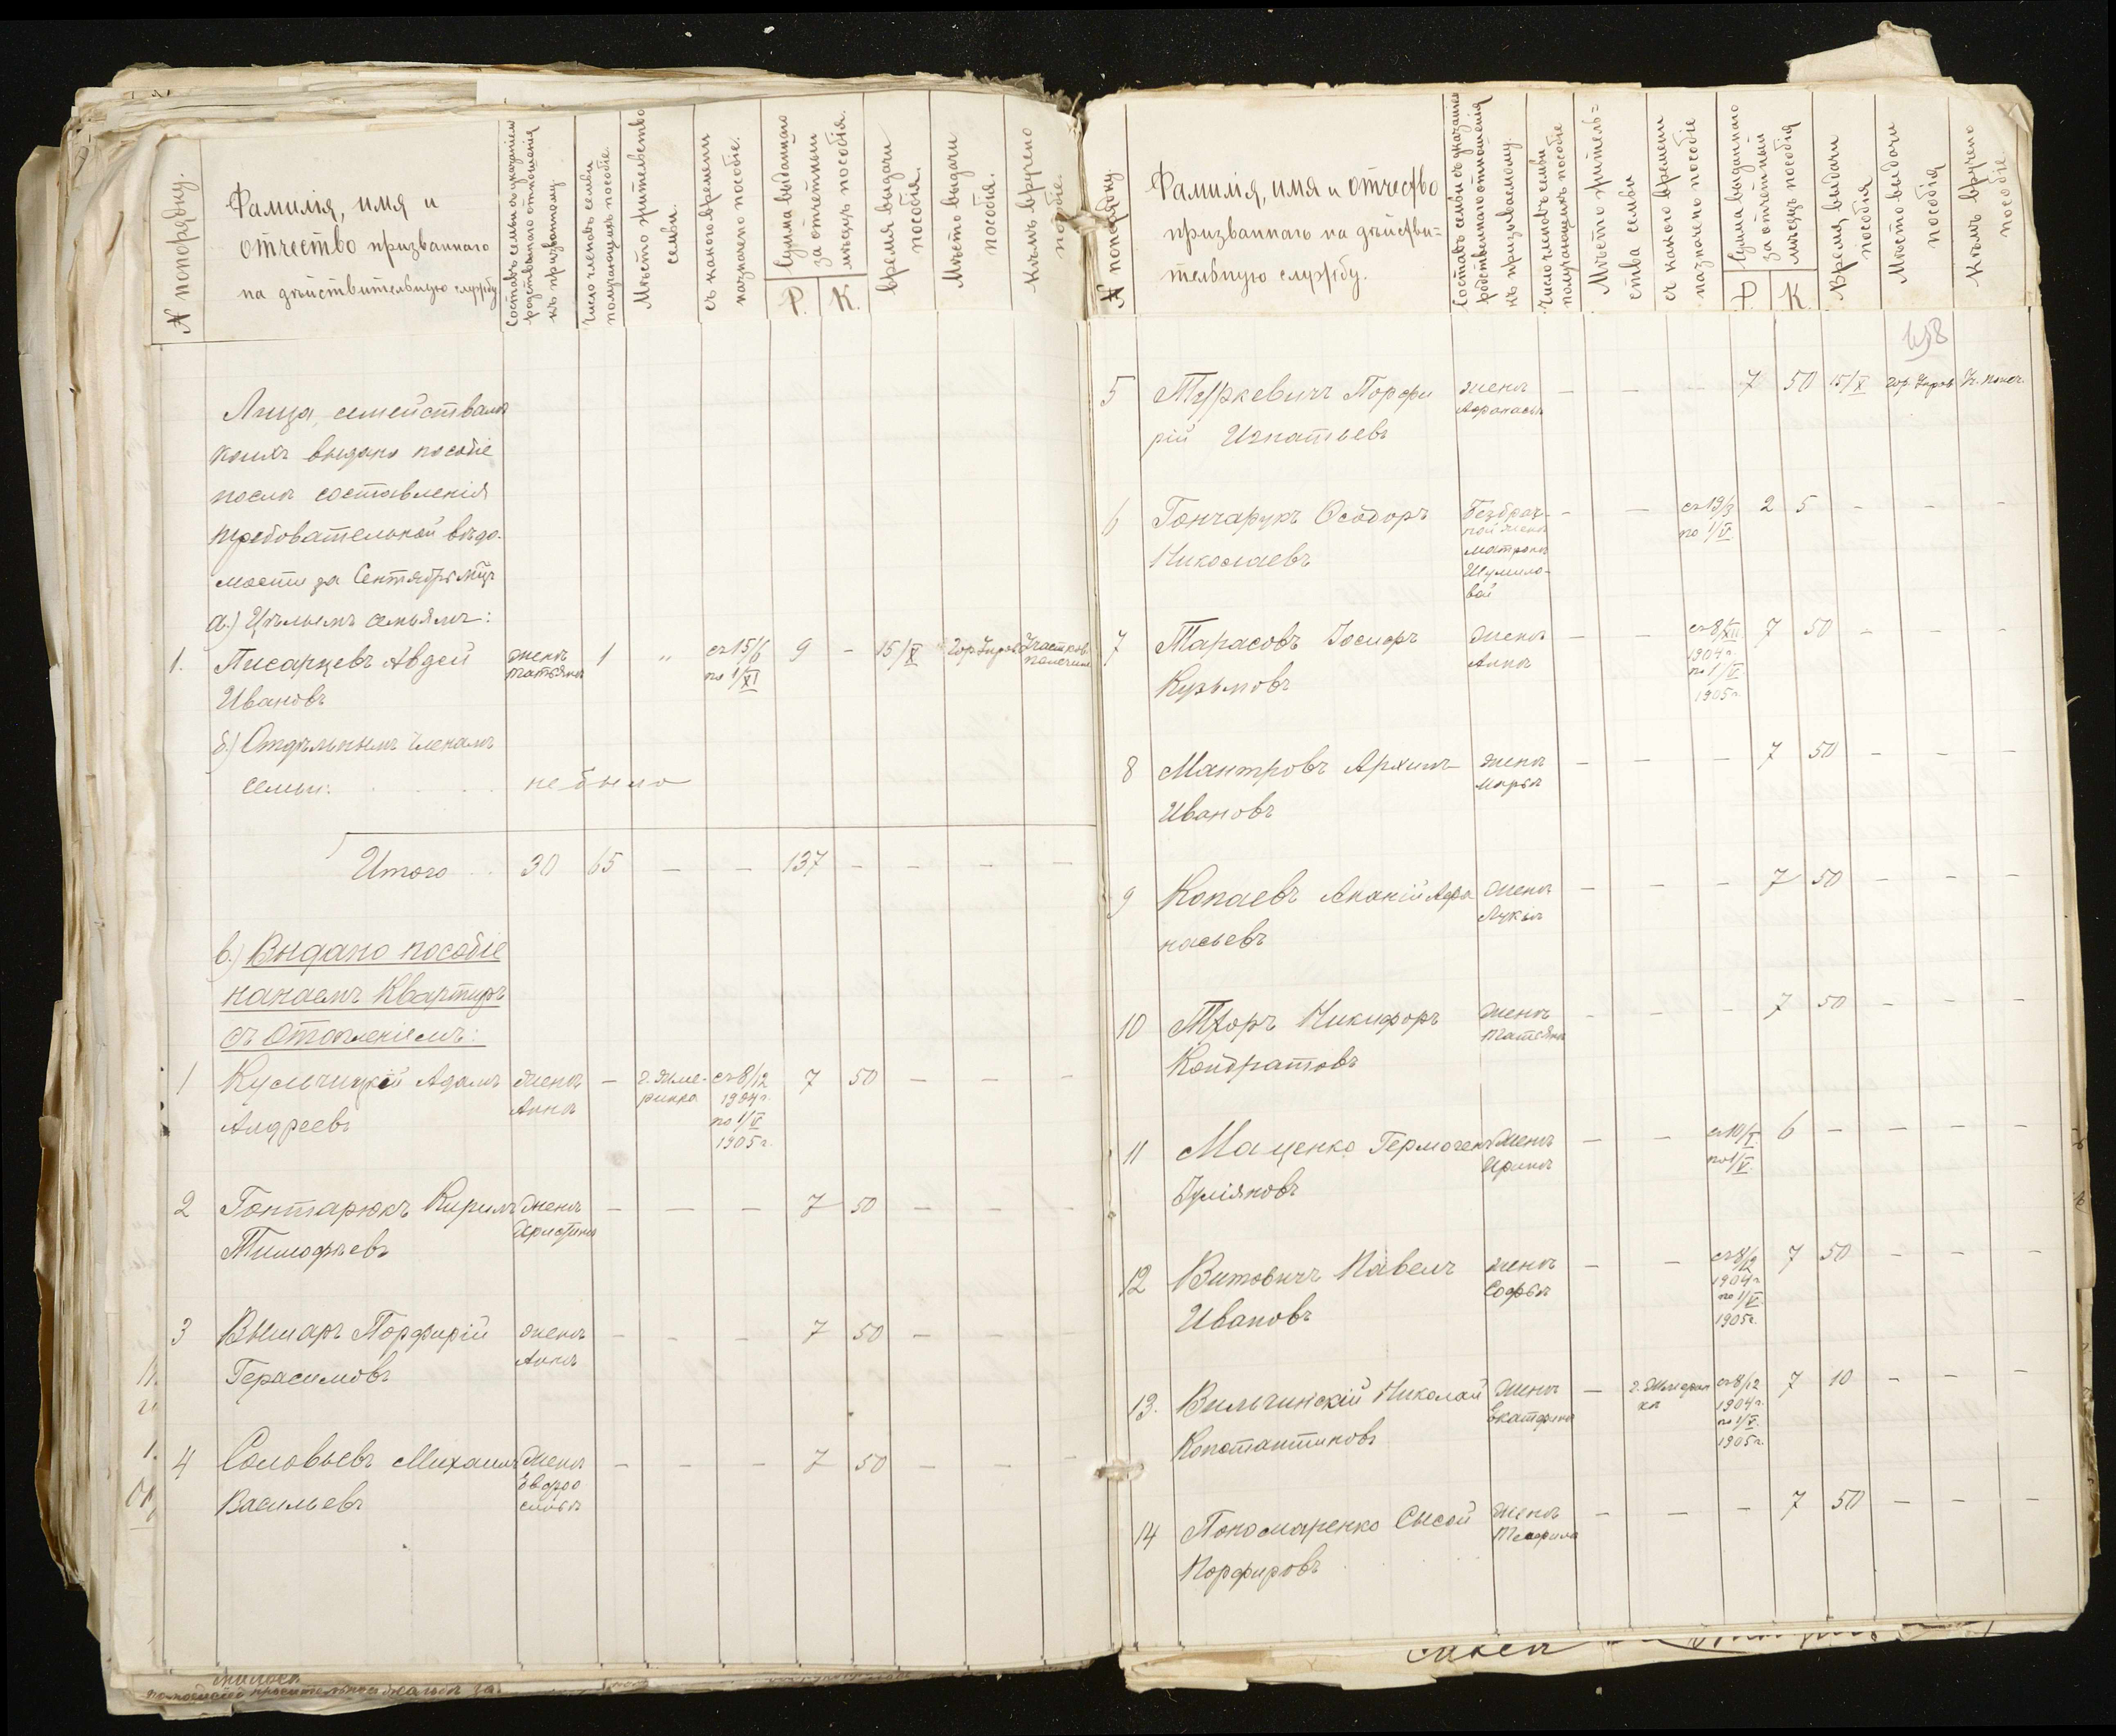 № попорядку.
Фамилія, имя и
отчество призваннаго
на дѣйствительную службу
Составъ семьи съ указаніемъ
родственнаго отношенія
къ призванному.
Число членовъ семьи
получающихъ пособіе.
Мѣсто жительство
семьи.
съ какого времени
назначено пособіе.
Сумма выданнаго
за отчетный
мѣсяцъ пособія.
Р.
К.
Время выдачи
пособія.
Мѣсто выдачи
пособія.
Кѣмъ вручено
пособіе.
Лица, семействамъ
коихъ выдано пособіе
послѣ составленія
требовательной вѣдо-
мости за Сентябрь м-цъ
а.) Цѣлымъ семьямъ:
1. Писарцевъ Авдей жена 1 " съ 15/6 9 — 15/X Участков.
Ивановъ Татьяна по 1/XI попечит.
б.) Отдѣльнымъ членамъ
семьи. не было
Итого 30 65 — — 137 — — — —
в.) Выдано пособіе
на наемъ квартиръ
съ отопленіемъ:
1 Кульчицкій Адамъ жена — г. Жме- съ 8/12 7 50 — — —
Андреевъ Анна ринка 1904 г.
по 1/V
1905 г.
2 Гонтарюкъ Кирилъ жена — — — 7 50 — — —
Тимофѣевъ Христина
3 Вышаръ Порфирій жена — — — 7 50 — — —
Герасимовъ Анна
4 Соловьевъ Михаилъ жена — — — 7 50 — — —
Васильевъ Евфро
синья
№ попорядку
Фамилія, имя и отчество
призваннаго на дѣйстви=
тельную службу.
Составъ семьи съ указаніемъ
родственнаго отношенія
къ призываемому.
Число членовъ семьи
получающихъ пособіе
Мѣсто житель=
ства семьи
съ какого времени
назначено пособіе
Сумма выданнаго
за отчетный
мѣсяцъ пособія
Р.
К.
Время выдачи
пособія
Мѣсто выдачи
пособія
Кѣмъ вручено
пособіе.
5 Туркевичъ Порфи жена — — 7 50 15/X
рій Игнатьевъ
6 Гончарукъ Ѳеодоръ Безбрач- — — съ 19/3 2 5 — — —
Николаевъ ной женѣ по 1/V.
Матрона
Шумило-
вой
7 Тарасовъ Іосифъ жена — — съ 8/XII 7 50 — — —
Кузьмовъ Анна 1904 г.
по 1/V
1905 г.
8 Мантровъ Архипъ жена — — — 7 50 — — —
Ивановъ Марья
9 Копаевъ Ананій Афа жена — — — 7 50 — — —
насьевъ Лукья
10 Тхоръ Никифоръ жена — — — 7 50 — — —
Кондратовъ Татьяна
11 Маценко Гермогенъ жена — — съ 10/I 6 — — — —
Іуліановъ Ирина по 1/V.
12 Витовичъ Павелъ жена — — съ 8/12 7 50 — — —
Ивановъ Софья 1904 г.
по 1/V.
1905 г.
13. Вильчинскій Николай жена — г. Жмерин съ 8/12 7 10 — — —
Константиновъ Екатерина ка 1904 г.
по 1/V.
1905 г.
14 Пономаренко Сысой жена — — — 7 50 — — —
Порфировъ Теофила